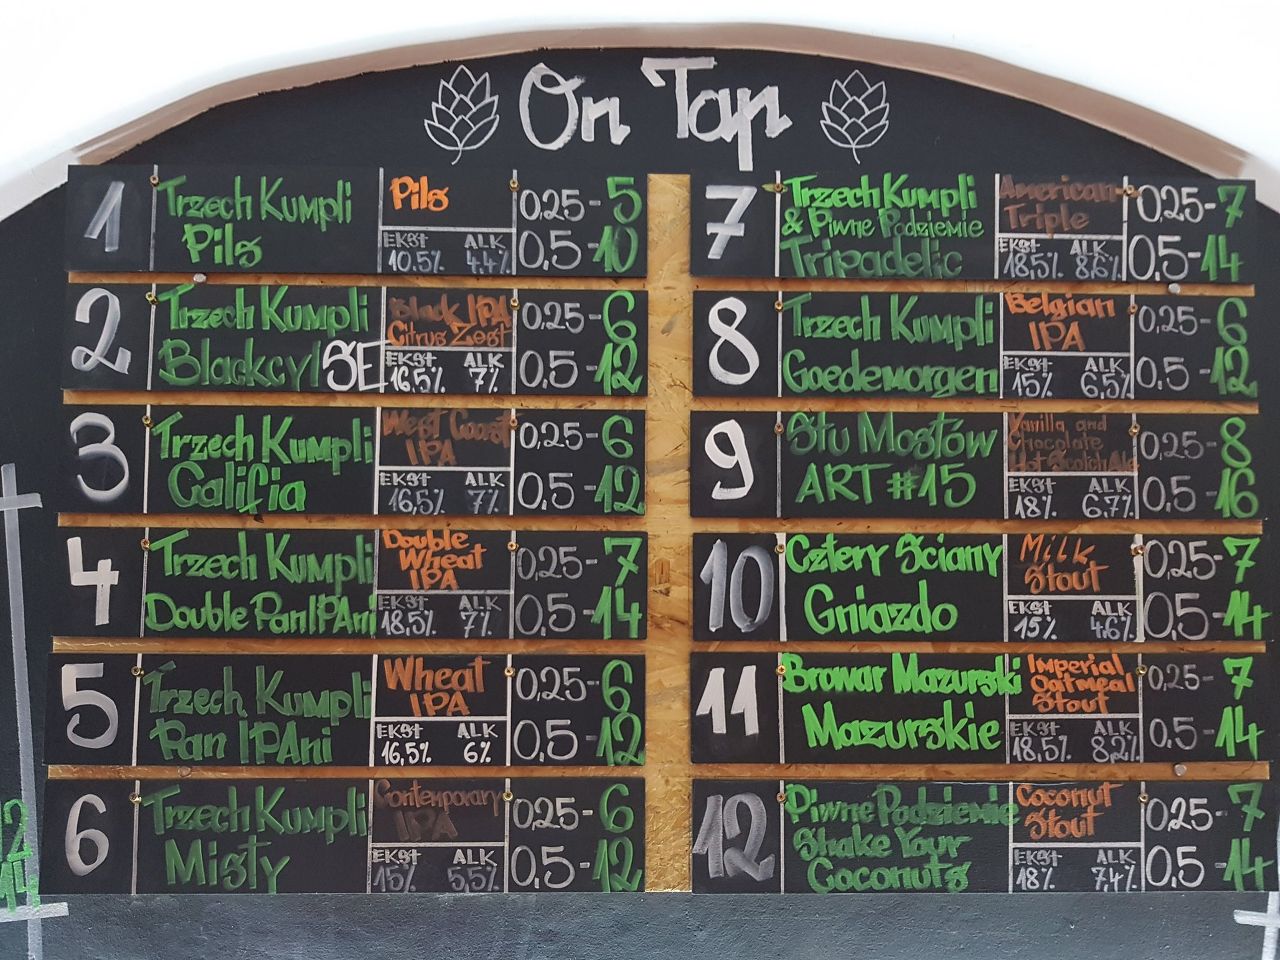 On Tap
1 Trzech Kumpli Pils 0,25 - 5
Pils EKST ALK 0,5 - 10
10.5% 4.4%
2 Trzech Kumpli Black IPA 0,25 - 6
Citrus Zest
Blackcyl SE EKST ALK 0,5 - 12
16,5% 7%
3 Trzech Kumpli West Coast 0,25 - 6
IPA
Califia EKST ALK 0,5 - 12
16,5% 7%
4 Trzech Kumpli Double 0,25 - 7
Wheat
IPA
Double PanIPAni EKST ALK 0,5 - 14
18,5% 7%
5 Trzech Kumpli Wheat 0,25 - 6
IPA
Pan IPAni EKST ALK 0,5 - 12
16,5% 6%
6 Trzech Kumpli Contemporary 0,25 - 6
IPA
Misty EKST ALK 0,5 - 12
15% 5,5%
7 Trzech Kumpli American 0,25 - 7
& Piwne Podziemie Triple
Tripadelic EKST ALK 0,5 - 14
18,5% 8,6%
8 Trzech Kumpli Belgian 0,25 - 6
IPA
Goedemorgen EKST ALK 0,5 - 12
15% 6,5%
9 Stu Mostów Vanilla and 0,25 - 8
Chocolate
Hot Scotch Ale
ART #15 EKST ALK 0,5 - 16
18% 6.7%
10 Cztery Ściany Milk 0,25 - 7
Stout
Gniazdo EKST ALK 0,5 - 14
15% 4,6%
11 Browar Mazurski Imperial 0,25 - 7
Oatmeal
Stout
Mazurskie EKST ALK 0,5 - 14
18,5% 8,2%
12 Piwne Podziemie Coconut 0,25 - 7
Shake Your Stout
Coconuts EKST ALK 0,5 - 14
18% 7,4%
12
14